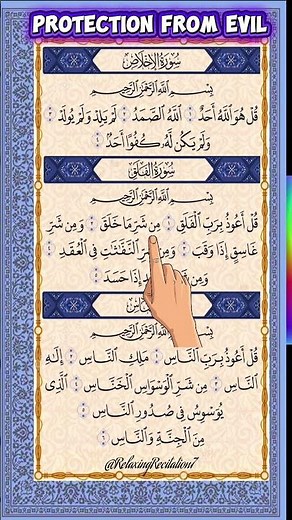 PROTECTION FROM EVIL
سُورَةُ الإِخْلَاصِ
بِسْمِ ٱللَّهِ ٱلرَّحْمَٰنِ ٱلرَّحِيمِ
قُلْ هُوَ ٱللَّهُ أَحَدٌ ۝ ٱللَّهُ ٱلصَّمَدُ ۝ لَمْ يَلِدْ وَلَمْ يُولَدْ ۝
وَلَمْ يَكُن لَّهُۥ كُفُوًا أَحَدٌۢ ۝
سُورَةُ الْفَلَقِ
بِسْمِ ٱللَّهِ ٱلرَّحْمَٰنِ ٱلرَّحِيمِ
قُلْ أَعُوذُ بِرَبِّ ٱلْفَلَقِ ۝ مِن شَرِّ مَا خَلَقَ ۝ وَمِن شَرِّ
غَاسِقٍ إِذَا وَقَبَ ۝ وَمِن شَرِّ ٱلنَّفَّٰثَٰتِ فِي ٱلْعُقَدِ ۝
وَمِن إِذَا حَسَدَ ۝
بِسْمِ ٱللَّهِ ٱلرَّحْمَٰنِ ٱلرَّحِيمِ
قُلْ أَعُوذُ بِرَبِّ ٱلنَّاسِ ۝ مَلِكِ ٱلنَّاسِ ۝ إِلَٰهِ
ٱلنَّاسِ ۝ مِن شَرِّ ٱلْوَسْوَاسِ ٱلْخَنَّاسِ ۝ ٱلَّذِي
يُوَسْوِسُ فِي صُدُورِ ٱلنَّاسِ ۝
مِنَ ٱلْجِنَّةِ وَٱلنَّاسِ ۝
@RelaxingRecitation7